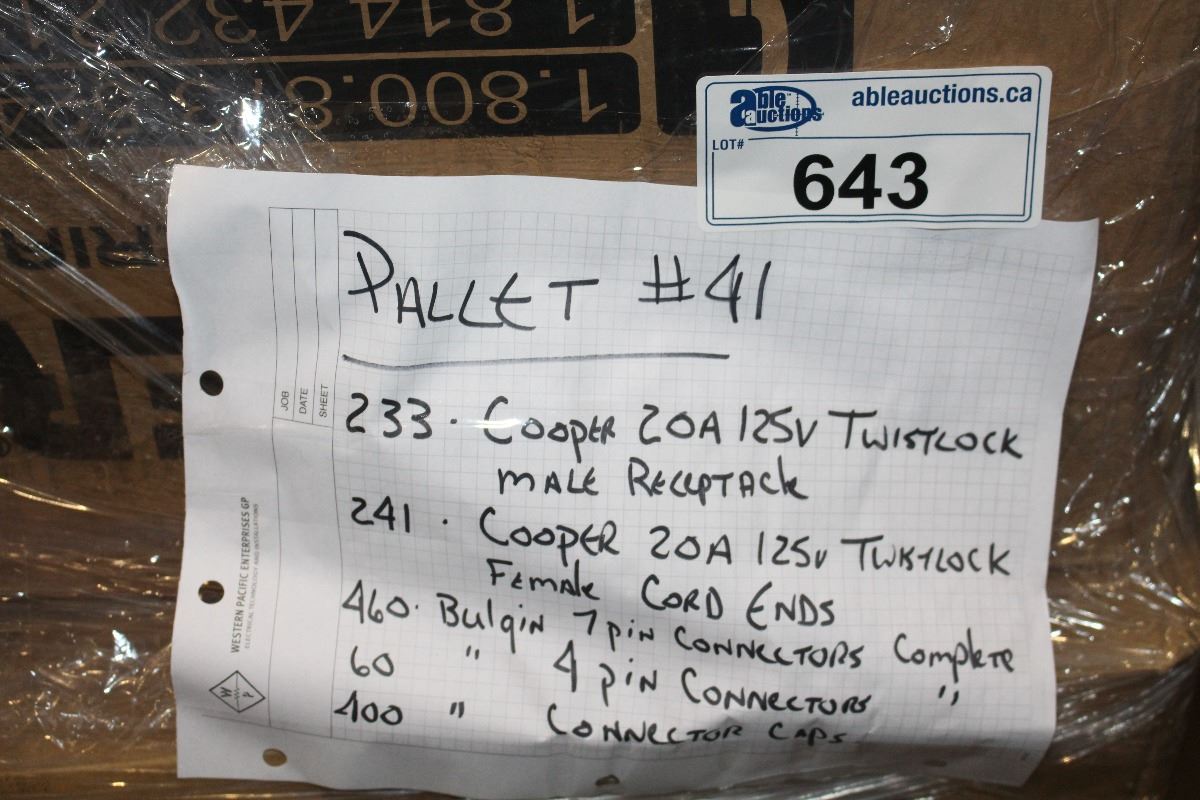 1.814.432
1.800.81
able
auctions
ableauctions.ca
LOT#
643
JOB
DATE
SHEET
PALLET #41
233 · COOPER 20A 125V TWISTLOCK
MALE RECEPTACLE
241 · COOPER 20A 125V TWISTLOCK
FEMALE CORD ENDS
460 · Bulgin 7 pin CONNECTORS Complete
60 " 4 pin CONNECTORS "
400 " CONNECTOR CAPS
WESTERN PACIFIC ENTERPRISES GP
ELECTRICAL TECHNOLOGY AND INSTALLATIONS
W
P